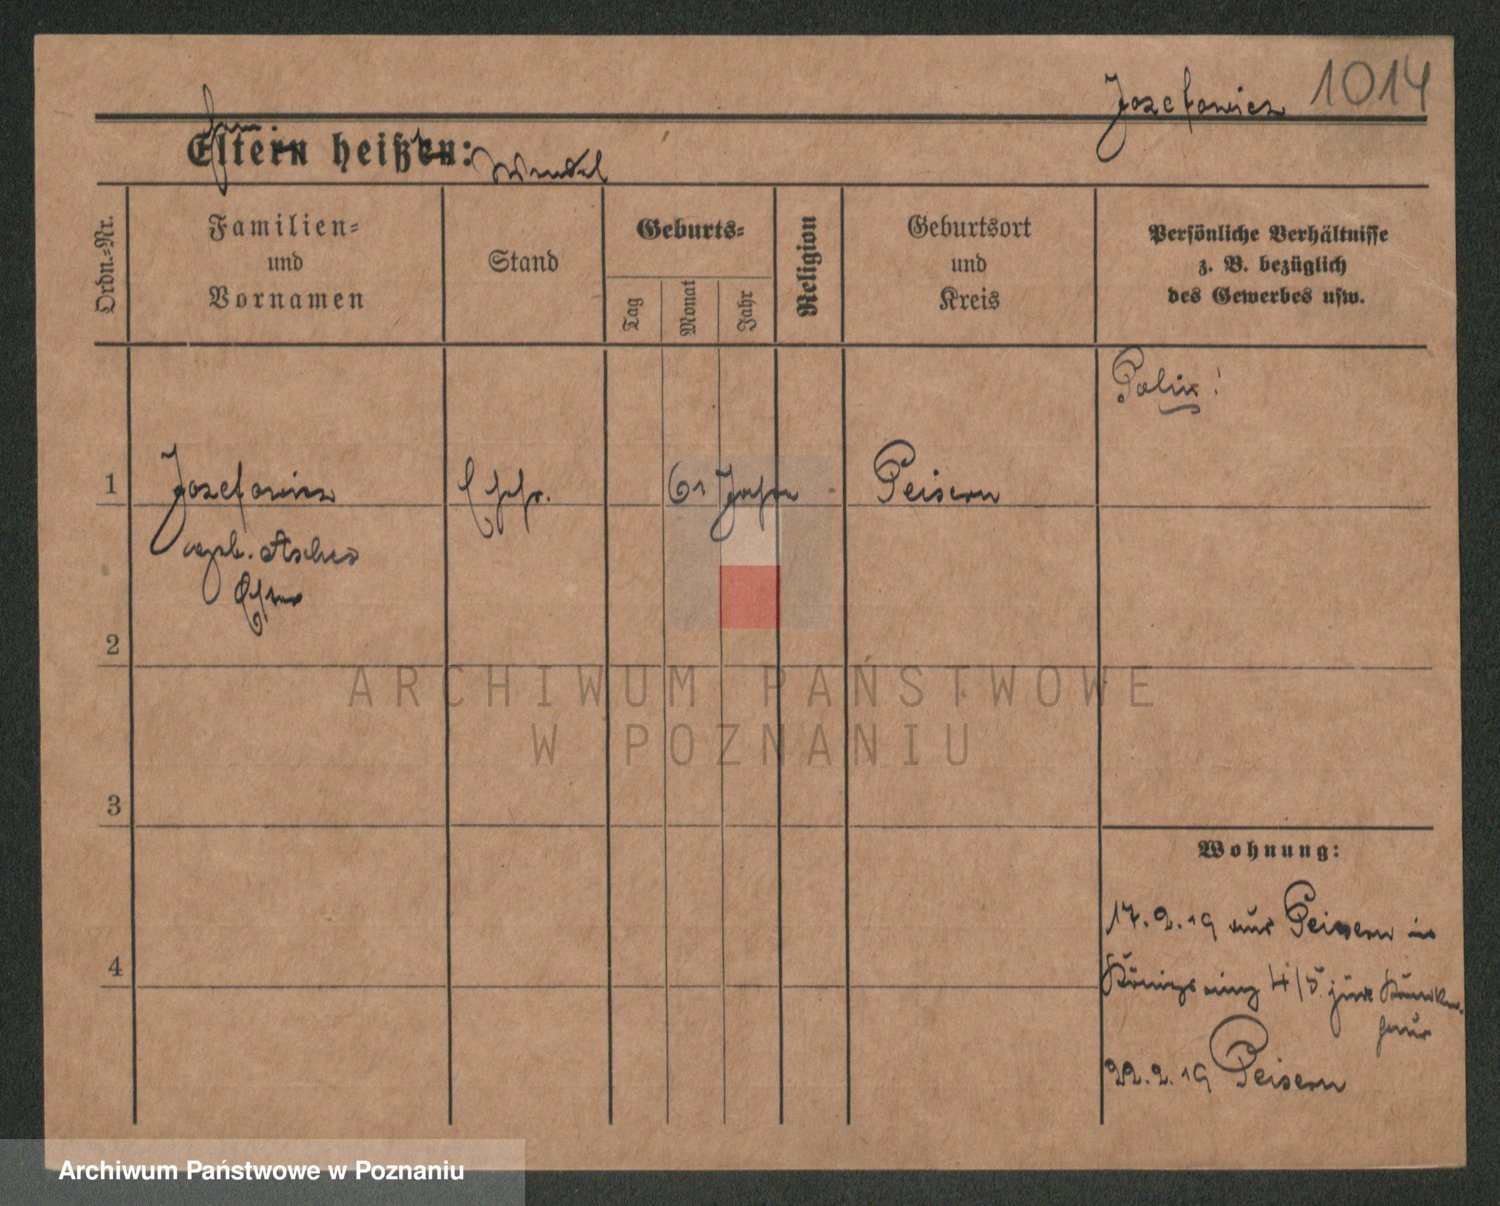 Jozefowicz 1014
Eltern heißen:
Ordn.-Nr.
Familien-
und
Vornamen
Stand
Geburts-
Tag
Monat
Jahr
Religion
Geburtsort
und
Kreis
Persönliche Verhältnisse
z. B. bezüglich
des Gewerbes usw.
1
Jozefowicz
Ehefr.
61 Jahre
Peisern
geb. Ascher
2
3
4
Wohnung:
17.2.19 aus Peisern in
Königsring 4/5 jüd. Kranken-
haus
22.2.19 Peisern
ARCHIWUM PAŃSTWOWE
W POZNANIU
Archiwum Państwowe w Poznaniu